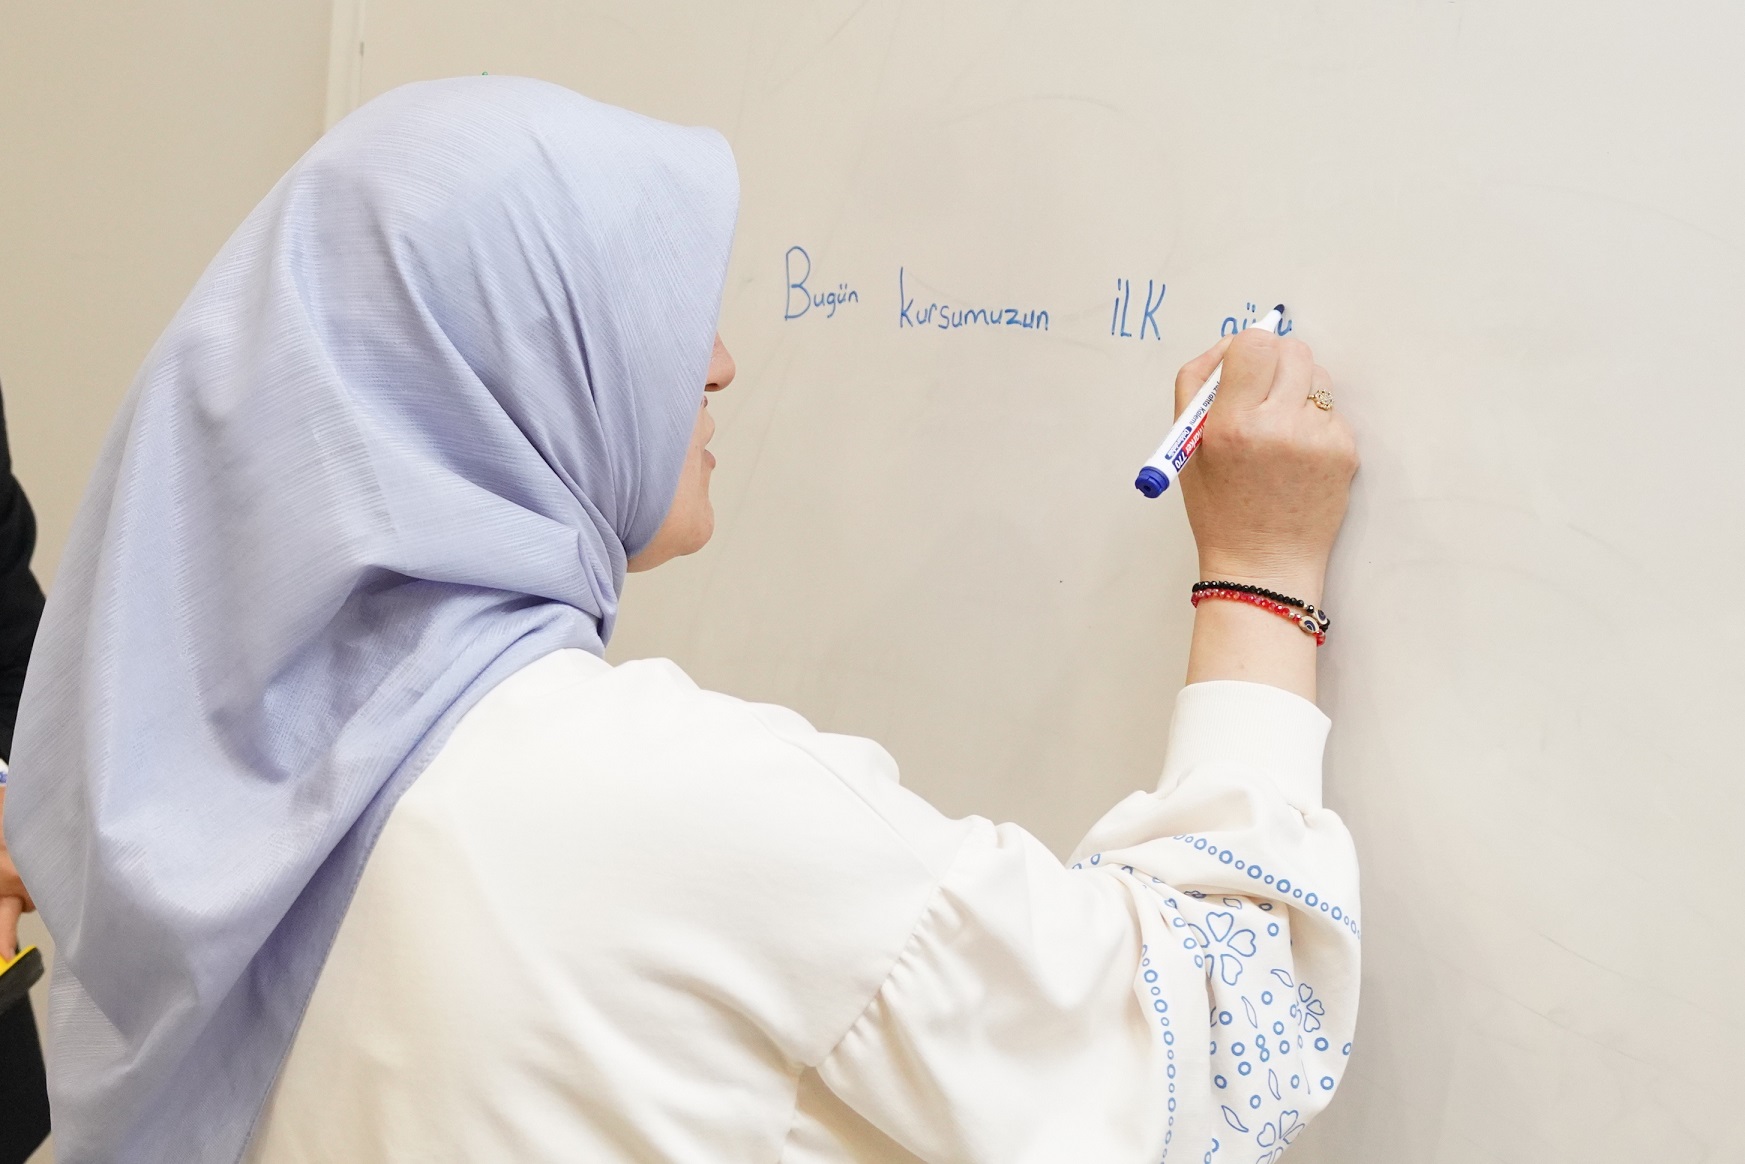 Bugün kursumuzun İLK günü
770